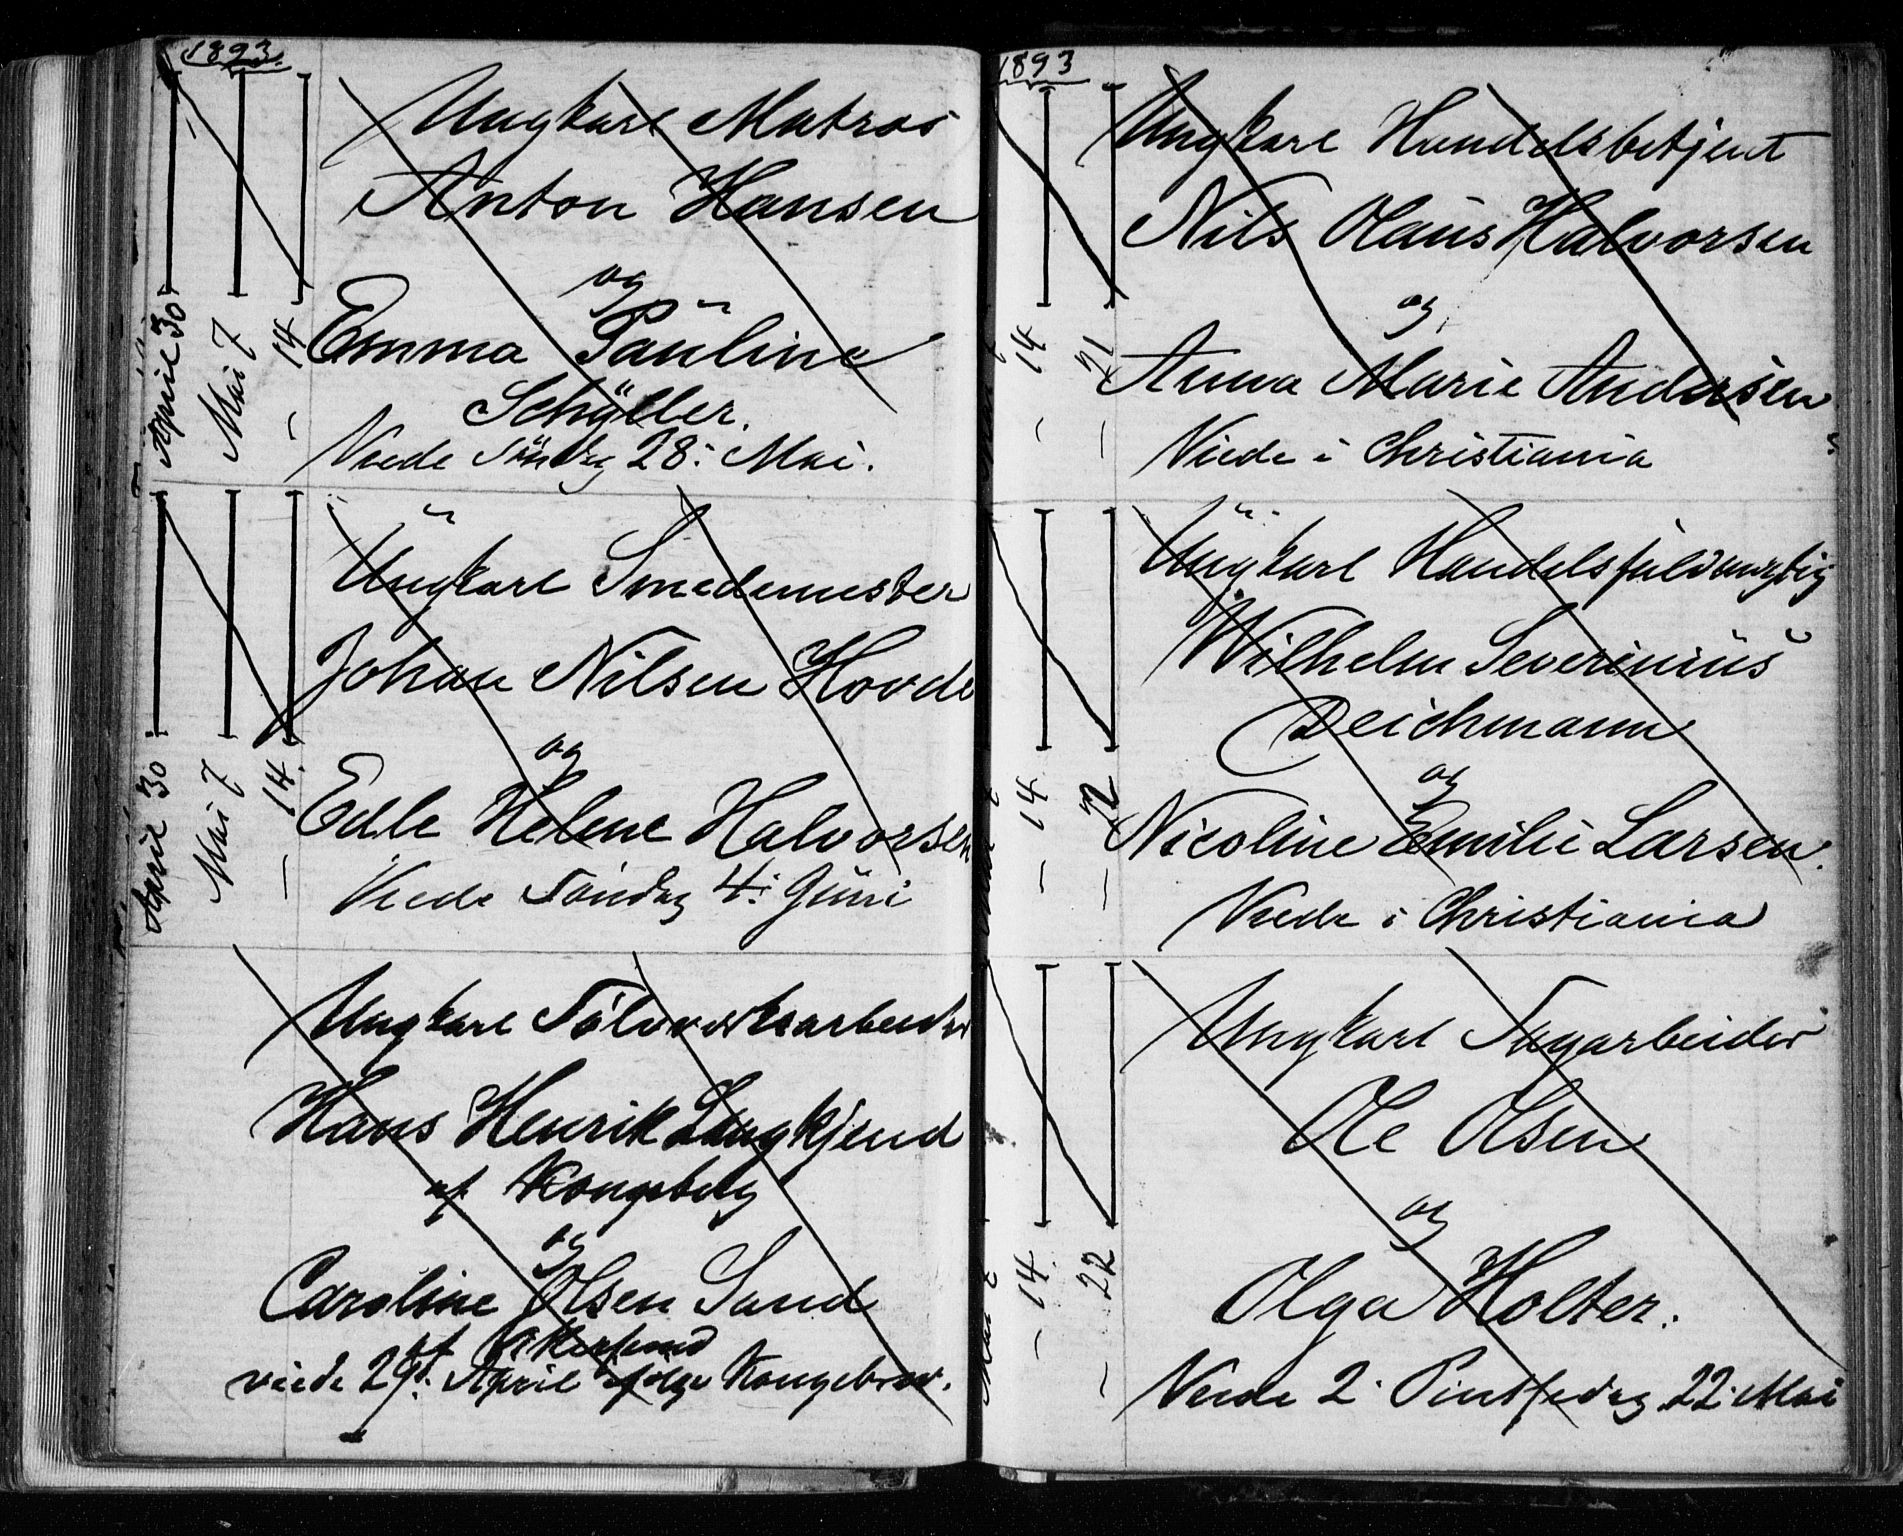 1893.
Ungkarl Matros
Anton Hansen
og
Emma Pauline
Schøller.
Viede Söndag 28: Mai.
April 30
Mai 7
— 14
Ungkarl Smedemester
Johan Nilsen Hovde
og
Edle Helene Halvorsen
Viede Söndag 4: Juni
April 30
Mai 7
— 14.
Ungkarl Sölvverksarbeider
Hans Henrik Langkjend
af Kongsberg
og
Caroline Olsen Sand
af
viede 29: April ifølge Kongebrev.
1893
Ungkarl Handelsbetjent
Nils Olaus Halvorsen
og
Anna Marie Andersen
Viede i Christiania
— 14
— 21
Ungkarl Handelsfuldmægtig
Wilhelm Severinius
Deichmann
og
Nicoline Emilie Larsen.
Viede i Christiania
— 14
— 22
Ungkarl Sagarbeider
Ole Olsen
og
Olga Holter.
Viede 2. Pintsedag 22. Mai
— 14.
— 22